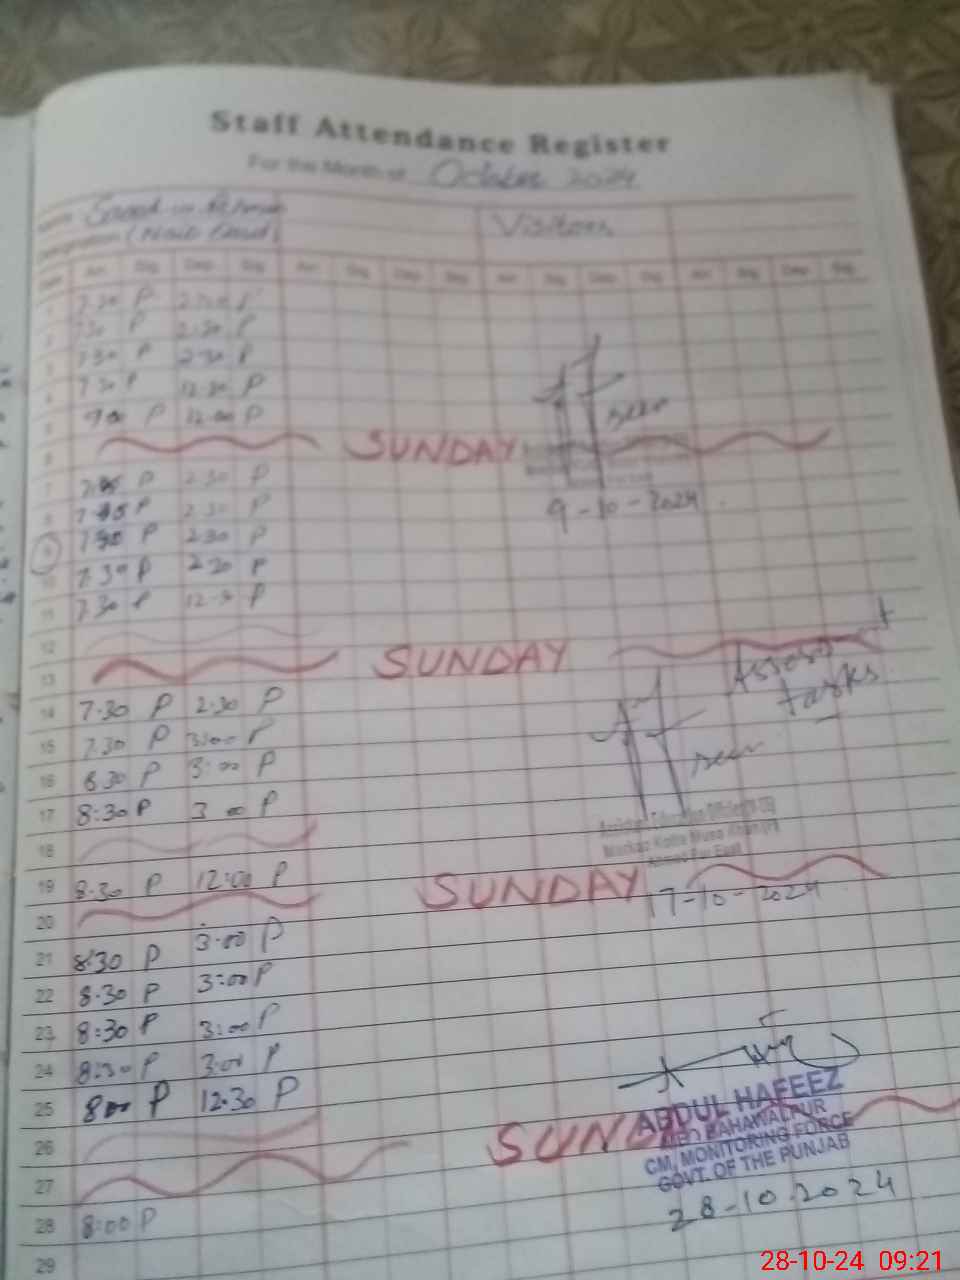 Staff Attendance Register
For the Month of October 2024
Visitors
Arr. Sig. Dep. Sig. Arr. Sig. Dep. Sig. Arr. Sig. Dep. Sig. Arr. Sig. Dep. Sig.
1 7.30 P 2.30 P
2 7.30 P 2.30 P
3 7.30 P 2.30 P
4 7.30 P 12.30 P
5 P 12.00 P
seen
6 SUNDAY
7 P 2.30 P
9-10-2024
8 7.45 P 2.30 P
9 7.30 P 2.30 P
10 7.30 P 2.30 P
11 7.30 P P
12
13 SUNDAY
tasks
14 7.30 P 2.30 P
15 7.30 P 3:00 P
seen
16 8.30 P 3:00 P
17 8:30 P 3 00 P
18
19 8.30 P 12:00 P
SUNDAY
17-10-2024
20
21 8:30 P 3:00 P
22 8.30 P 3:00 P
23 8:30 P 3:00 P
24 8:30 P 3:00 P
25 800 P 12.30 P
ABDUL HAFEEZ
BAHAWALPUR
26 SUND
CM, MONITORING FORCE
GOVT. OF THE PUNJAB
27
28 8:00 P
28-10.2024
29
28-10-24 09:21